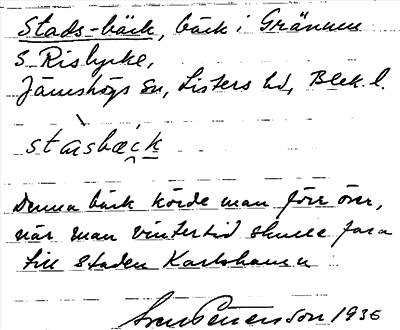 Stads-bäck, bäck i Grännum
S. Rislycke,
Jämshögs sn, Listers hd, Blek. l.
stàsbæck
Denna bäck körde man förr över,
när man vintertid skulle fara
till staden Karlshamn
Sven Petersson 1936